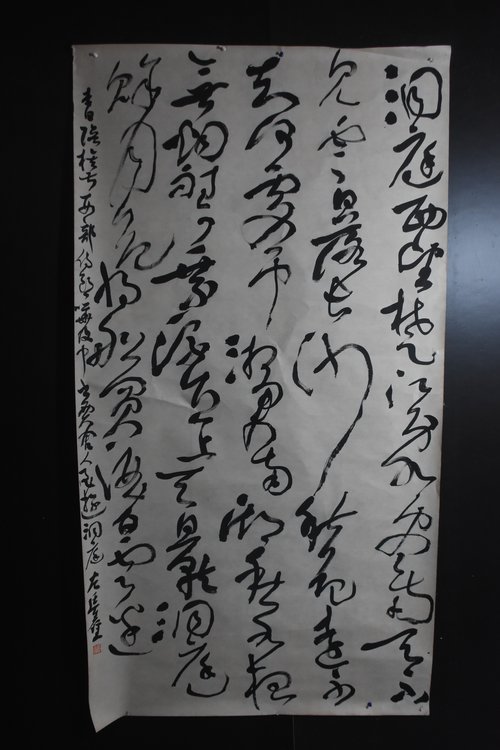 洞庭西望楚江分水尽南天不
见云日落长沙秋色远不
知何处吊湘君南湖秋水夜
無烟耐可乘流直上天且就洞庭
賖月色将船買酒白云边
陪族叔刑部侍郎晔及中書賈舍人至遊洞庭